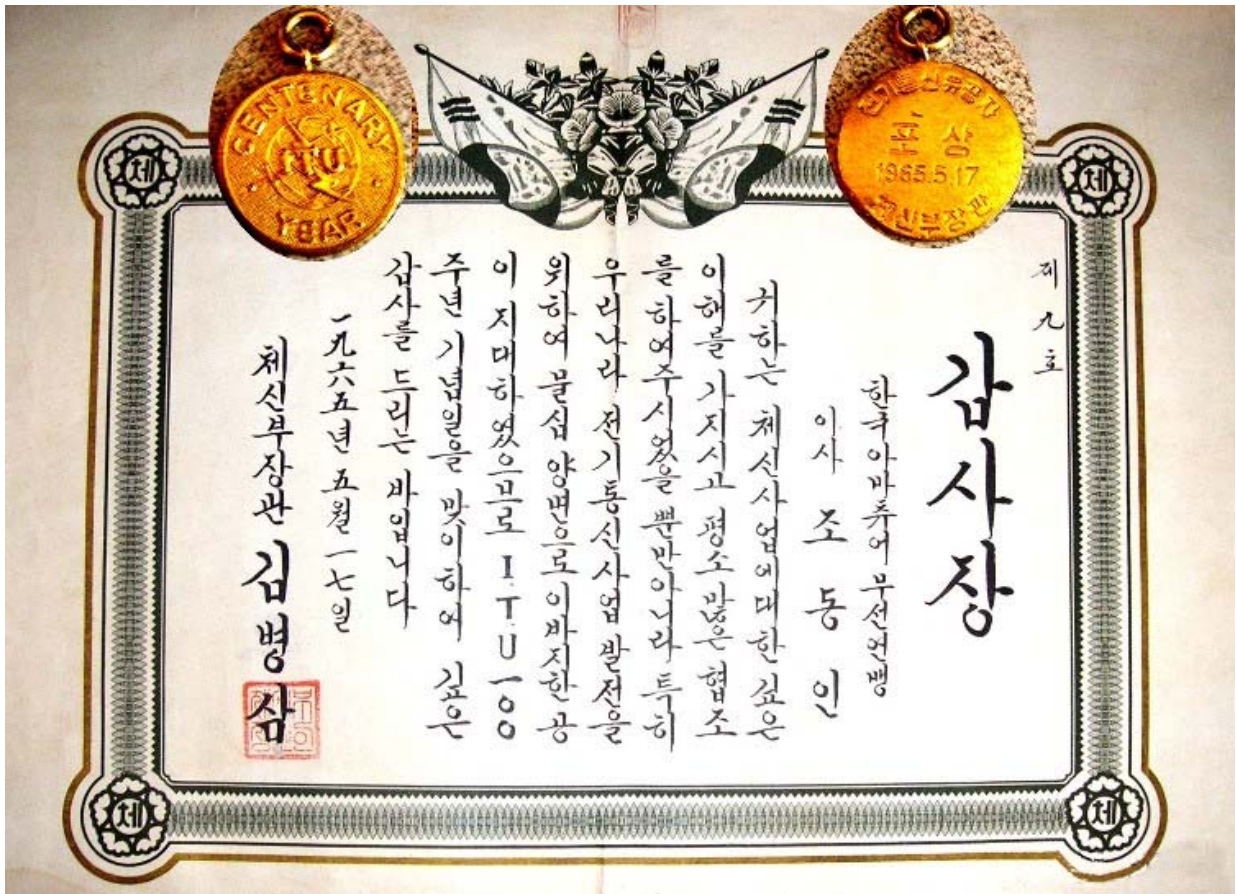 CENTENARY
ITU
YEAR
전기통신유공자
표상
1965.5.17
체신부장관
체
체
체
체
제九호
감사장
한국아마츄어 무선연맹
이사 조동인
귀하는 체신사업에대한 깊은
이해를 가지시고 평소 많은 협조
를 하여주시었을 뿐만아니라 특히
우리나라 전기통신사업 발전을
위하여 물심 양면으로 이바지한 공
이 지대하였으므로 I.T.U 一00
주년 기념일을 맞이하여 깊은
감사를 드리는 바입니다
一九六五년 五월 一七일
체신부장관 김병삼